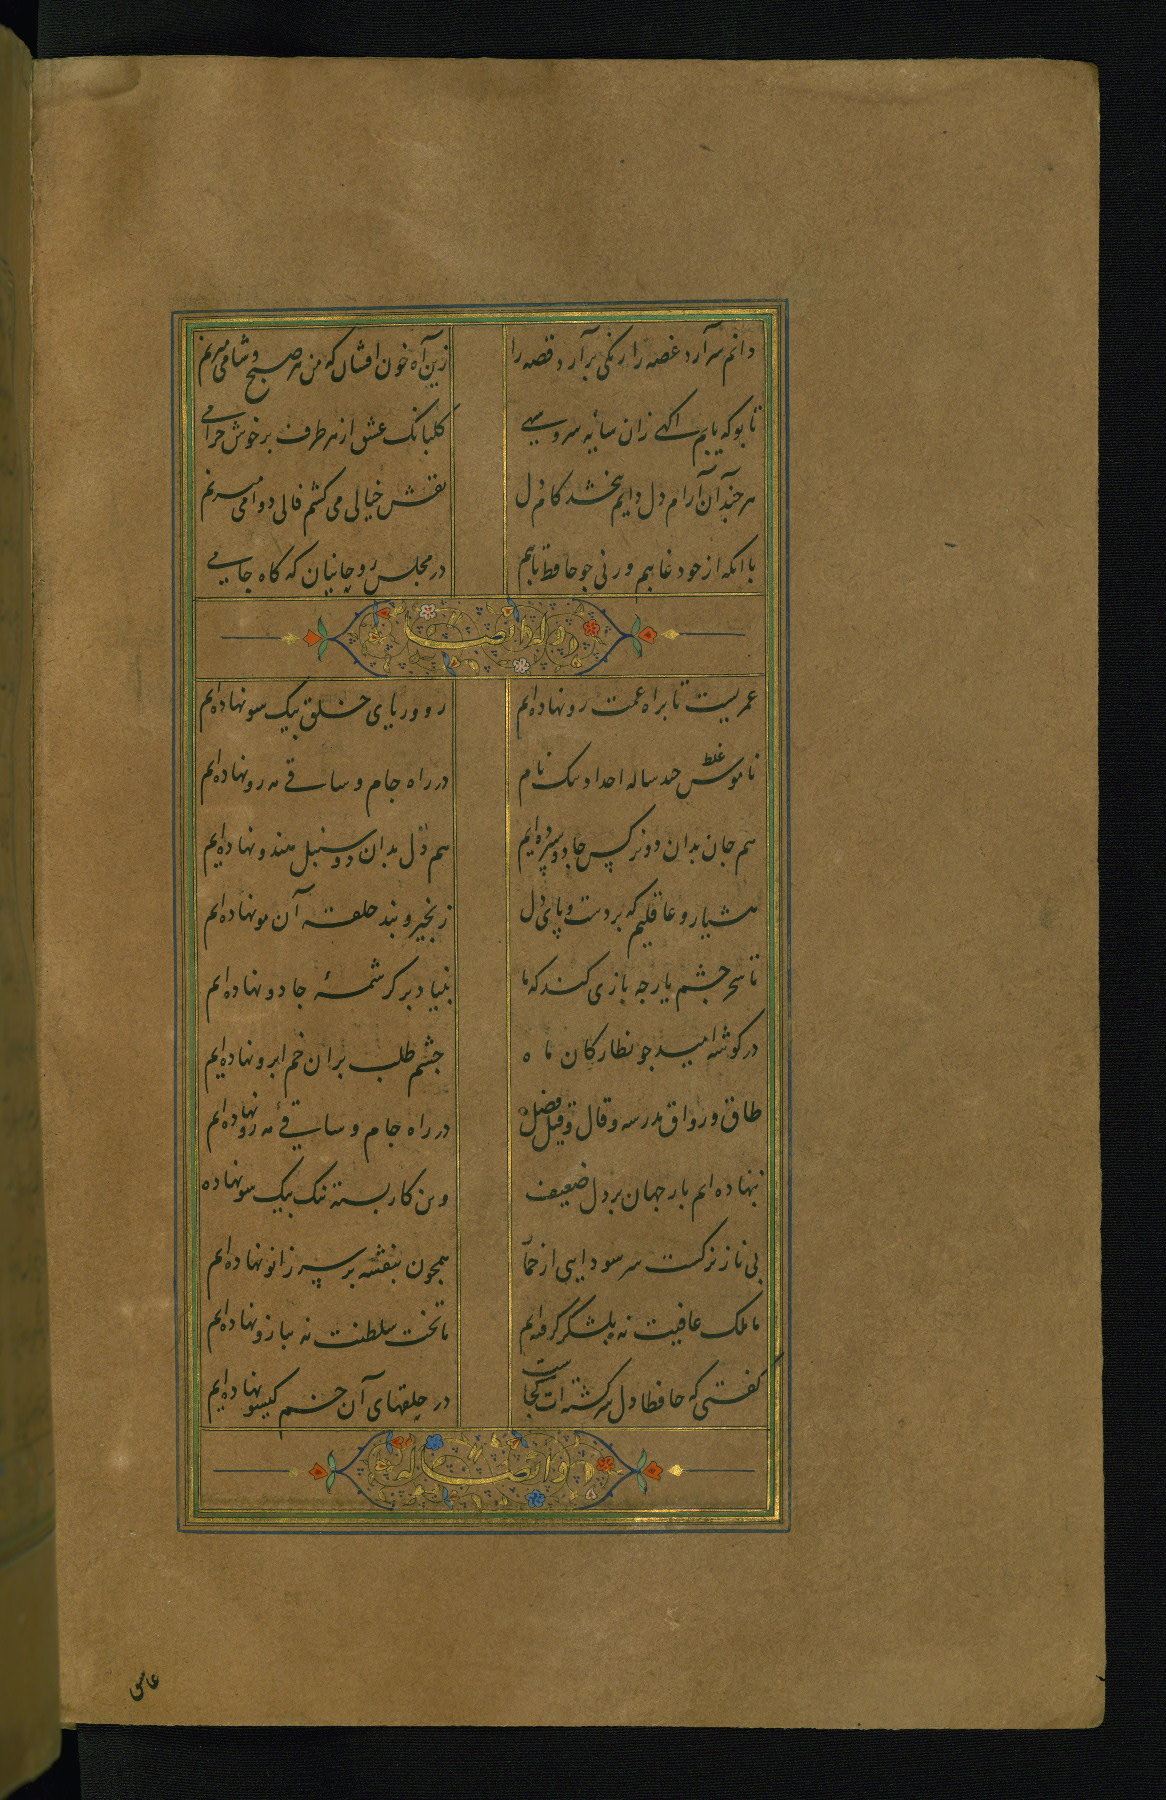 دانم سرآرد غصه را رنگی برآرد قصه را زین آه خون افشان که من هر صبح و شامی میزنم
تا بو که یابم اکهی زان سایه سرو سهی کلبانک عشق از هر طرف بر خوش خرامی
هر چند آن آرام دل دایم نبخشد کام دل نقش خیالی می کشم فالی دوامی میزنم
با انکه از خود غایبم و ز می چو حافظ تایبم در مجلس روحانیان که گاه جامی
وله ایضا
عمریست تا براه غمت رو نهاده ایم روی و ریای خلق بیک سو نهاده ایم
ناموس غلط چند ساله اجداد نیک نام در راه جام و ساقی مه رو نهاده ایم
هم جان بدان دو نرکس جادو سپرده ایم هم دل بدان دو سنبل هندو نهاده ایم
هشیار و عاقلیم که بر دست و پای دل زنجیر و بند حلقه آن مو نهاده ایم
تا سحر چشم یار چه بازی کند که ما بنیاد بر کرشمهٔ جادو نهاده ایم
در کوشه امید چو نظارکان ماه چشم طلب بران خم ابرو نهاده ایم
طاق و رواق مدرسه و قال و قیل فضل در راه جام و ساقی مه رو نهاده ایم
ننهاده ایم بار جهان بر دل ضعیف وین کار بسته تنک بیک سو نهاده
بی ناز نرکست سر سودایی از خمار همچون بنفشه بر سر زانو نهاده ایم
ما ملک عافیت نه بلشکر کرفته ایم ما تخت سلطنت نه ببازو نهاده ایم
کفتی که حافظا دل سرکشته ات کجاست در حلقهای آن خم کیسو نهاده ایم
وله ایضا